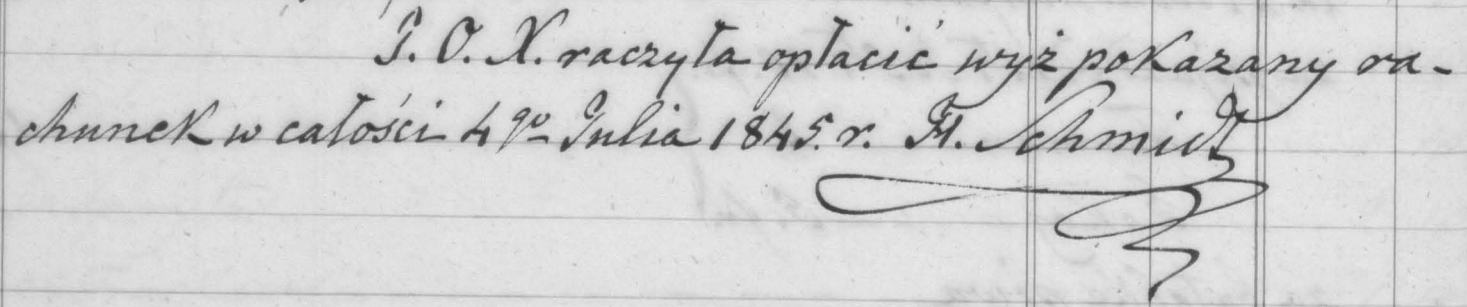 J. O. X. raczyła opłacić wyż pokazany ra-
chunek w całości 4go Julia 1845. r. H. Schmidt